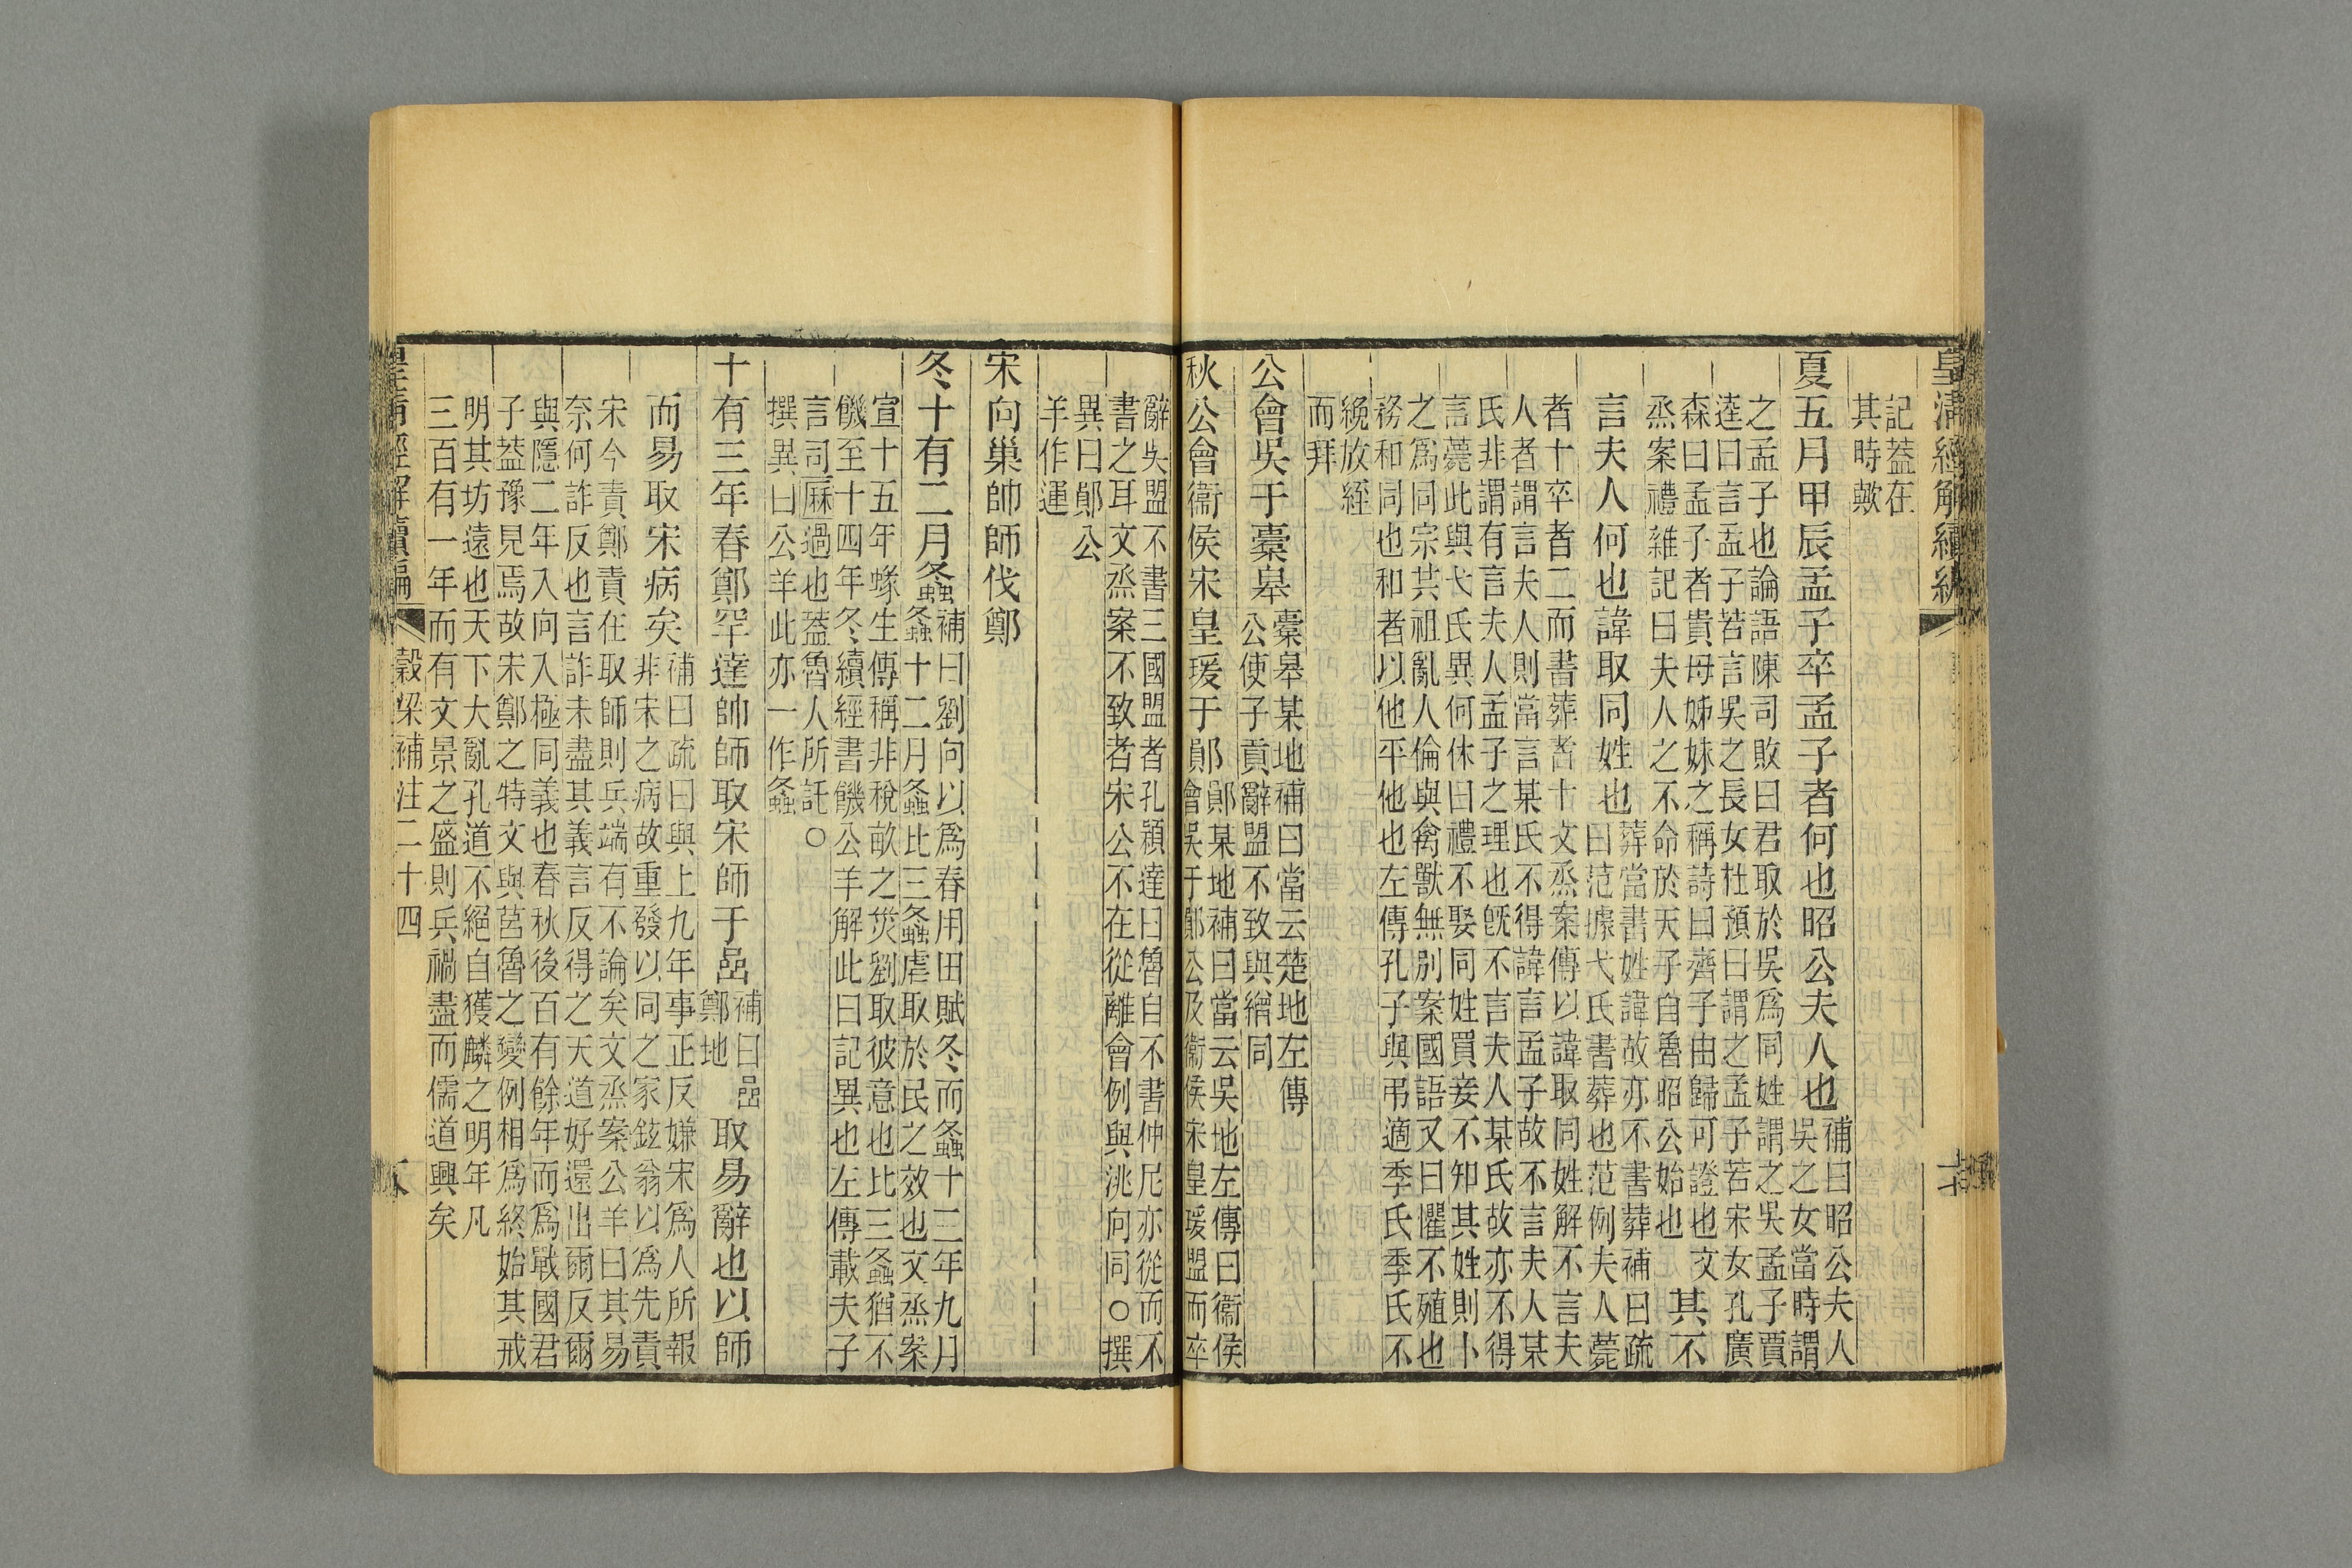 皇清經解續編
記蓋在
其時歟
夏五月甲辰孟子卒孟子者何也昭公夫人也
補曰昭公夫人
吳之女當時謂
之孟子也論語陳司敗曰君取於吳爲同姓謂之吳孟子賈
逵曰言孟子若言吳之長女杜預曰謂之孟子若宋女孔廣
森曰孟子者貴母姊妹之稱詩曰齊子由歸可證也文
烝案禮雜記曰夫人之不命於天子自魯昭公始也
其不
言夫人何也諱取同姓也
葬當書姓諱故亦不書葬補曰疏
曰范據弋氏書葬也范例夫人薨
者十卒者二而書葬者十文烝案傳以諱取同姓解不言夫
人者謂言夫人則當言某氏不得諱言孟子故不言夫人某
氏非謂有言夫人孟子之理也旣不言夫人某氏故亦不得
言薨此與弋氏異何休曰禮不娶同姓買妾不知其姓則卜
之爲同宗共祖亂人倫與禽獸無別案國語又曰懼不殖也
務和同也和者以他平他也左傳孔子與弔適季氏季氏不
絻放絰
而拜
公會吳于橐皋
橐皋某地補曰當云楚地左傳
公使子貢辭盟不致與繒同
秋公會衞侯宋皇瑗于鄖
鄖某地補曰當云吳地左傳曰衞侯
會吳于鄖公及衞侯宋皇瑗盟而卒
辭吳盟不書三國盟者孔穎達曰魯自不書仲尼亦從而不
書之耳文烝案不致者宋公不在從離會例與洮向同○撰
異曰鄖公
羊作運
宋向巢帥師伐鄭
冬十有二月螽
補曰劉向以爲春用田賦冬而螽十三年九月
螽十二月螽比三螽虐取於民之效也文烝案
宣十五年蝝生傳稱非稅畝之災劉取彼意也比三螽猶不
饑至十四年冬續經書饑公羊解此曰記異也左傳載夫子
言司厤過也葢魯人所託○
撰異曰公羊此亦一作螽
十有三年春鄭罕達帥師取宋師于嵒
補曰嵒
鄭地
取易辭也以師
而易取宋病矣
補曰疏曰與上九年事正反嫌宋爲人所報
非宋之病故重發以同之家鉉翁以爲先責
宋今責鄭責在取師則兵端有不論矣文烝案公羊曰其易
奈何詐反也言詐未盡其義言反得之天道好還出爾反爾
與隱二年入向入極同義也春秋後百有餘年而爲戰國君
子葢豫見焉故宋鄭之特文與莒魯之變例相爲終始其戒
明其坊遠也天下大亂孔道不絕自獲麟之明年凡
三百有一年而有文景之盛則兵禍盡而儒道興矣
皇清經解續編
穀梁補注二十四